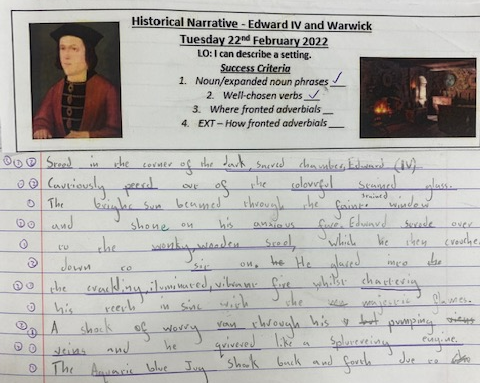 Historical Narrative - Edward IV and Warwick
Tuesday 22nd February 2022
LO: I can describe a setting.
Success Criteria
1. Noun/expanded noun phrases ✓
2. Well-chosen verbs ✓
3. Where fronted adverbials __
4. EXT – How fronted adverbials __
① ② ③ Stood in the corner of the dark, sacred chamber, Edward (IV)
① ② Cautiously peerd out of the colourful stained glass.
① The bright sun beamed through the stained window
① ② and shone on his anxious face. Edward strode over
① to the wonky, wooden stool, which he then crouched
② down to sit on. He glared into
① ② the crackling, iluminated, vibrant fire whilst chattering
① his teeth in sinc with the majestic flames.
② ① A shock of worry ran through his pumping
① ② veins and he quivered like a splutereing engine.
① ② The Aquatic blue Jug shook back and forth due to